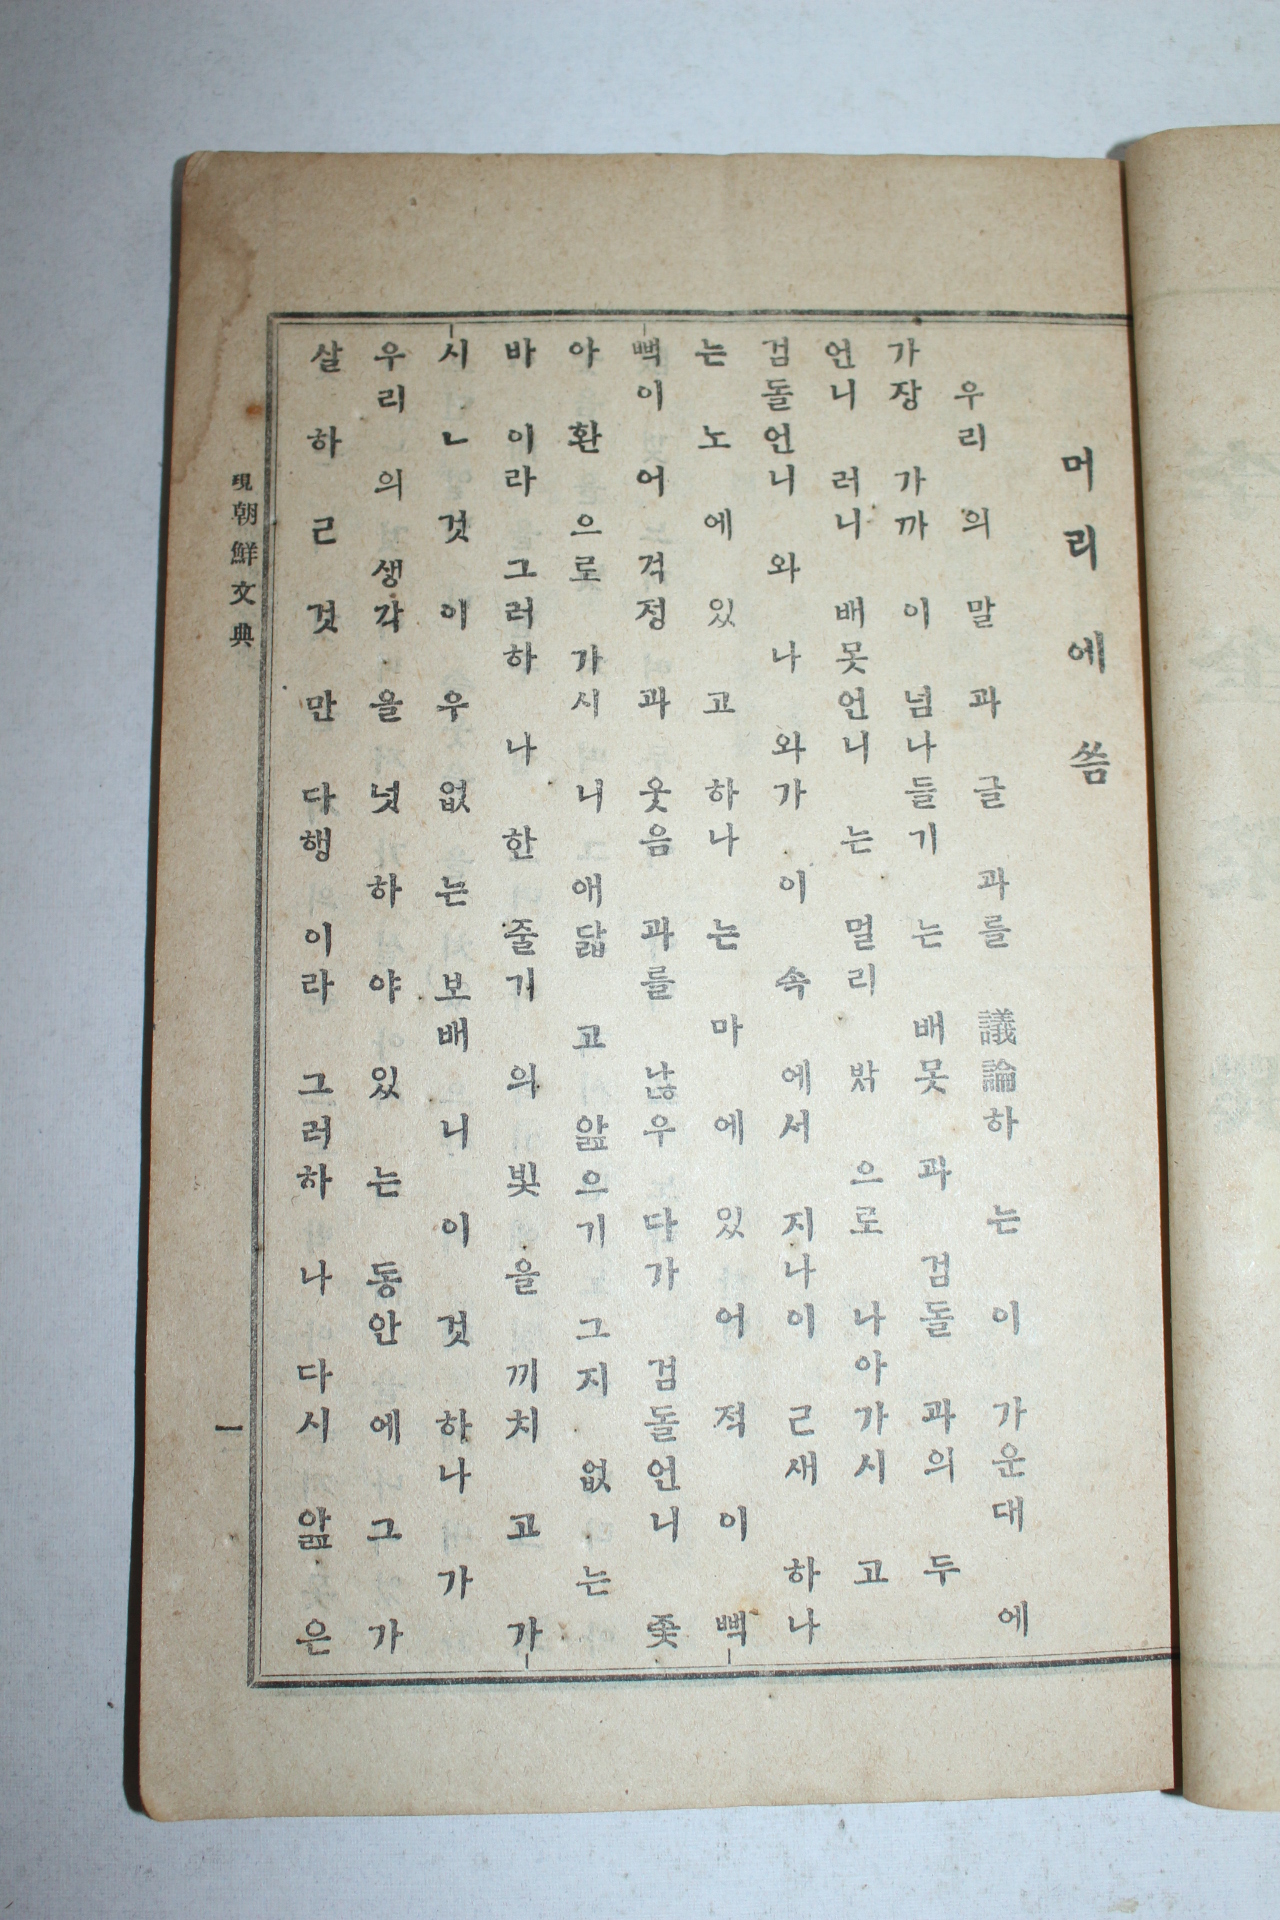 머리에씀
우리 의 말 과 글 과를 議論하 는 이 가운대 에
가장 가까 이 넘나들기 는 배못 과 검돌 과의 두
언니 러니 배못언니 는 멀리 밝 으로 나아가시 고
검돌언니 와 나 와가 이 속 에서 지나이 ㄹ새 하나
는 노 에 있 고 하나 는 마 에 있 어 적 이 빽
빽이 어 걱정 과 웃음 과를 낞우 다가 검돌언니 좇
아 환 으로 가시 니 애닯 고 앒으기 그지 없 는
바 이라 그러하 나 한 줄기 의 빛 을 끼치 고 가
시 ㄴ 것 이 우 없 는 보배 니 이 것 하나 가
우리 의 생각 을 넛 하 야 있 는 동안 에 그 가
살 하 ㄹ 것 만 다행 이라 그러하 나 다시 앒 은
現朝鮮文典
一